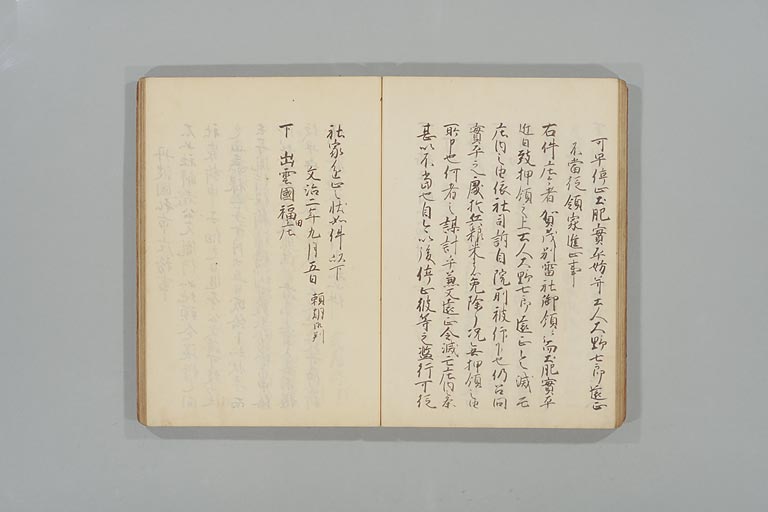 可早停止土肥實平妨并土人大野七郎遠正
不當從領家進止事
右件庄者賀茂別雷社御領也而土肥實平
近日致押領之上土人大野七郎遠正
庄内之由依社司訴自院所被仰下也仍召問
實平之處於兵粮米者免除了況無押領之由
所申也何者之謀計乎兼又遠正令滅亡庄内条
甚以不當也自今以後停止彼等之濫行可從
社家進止之状如件以下
文治二年九月五日 頼朝御判
下 出雲國福田庄